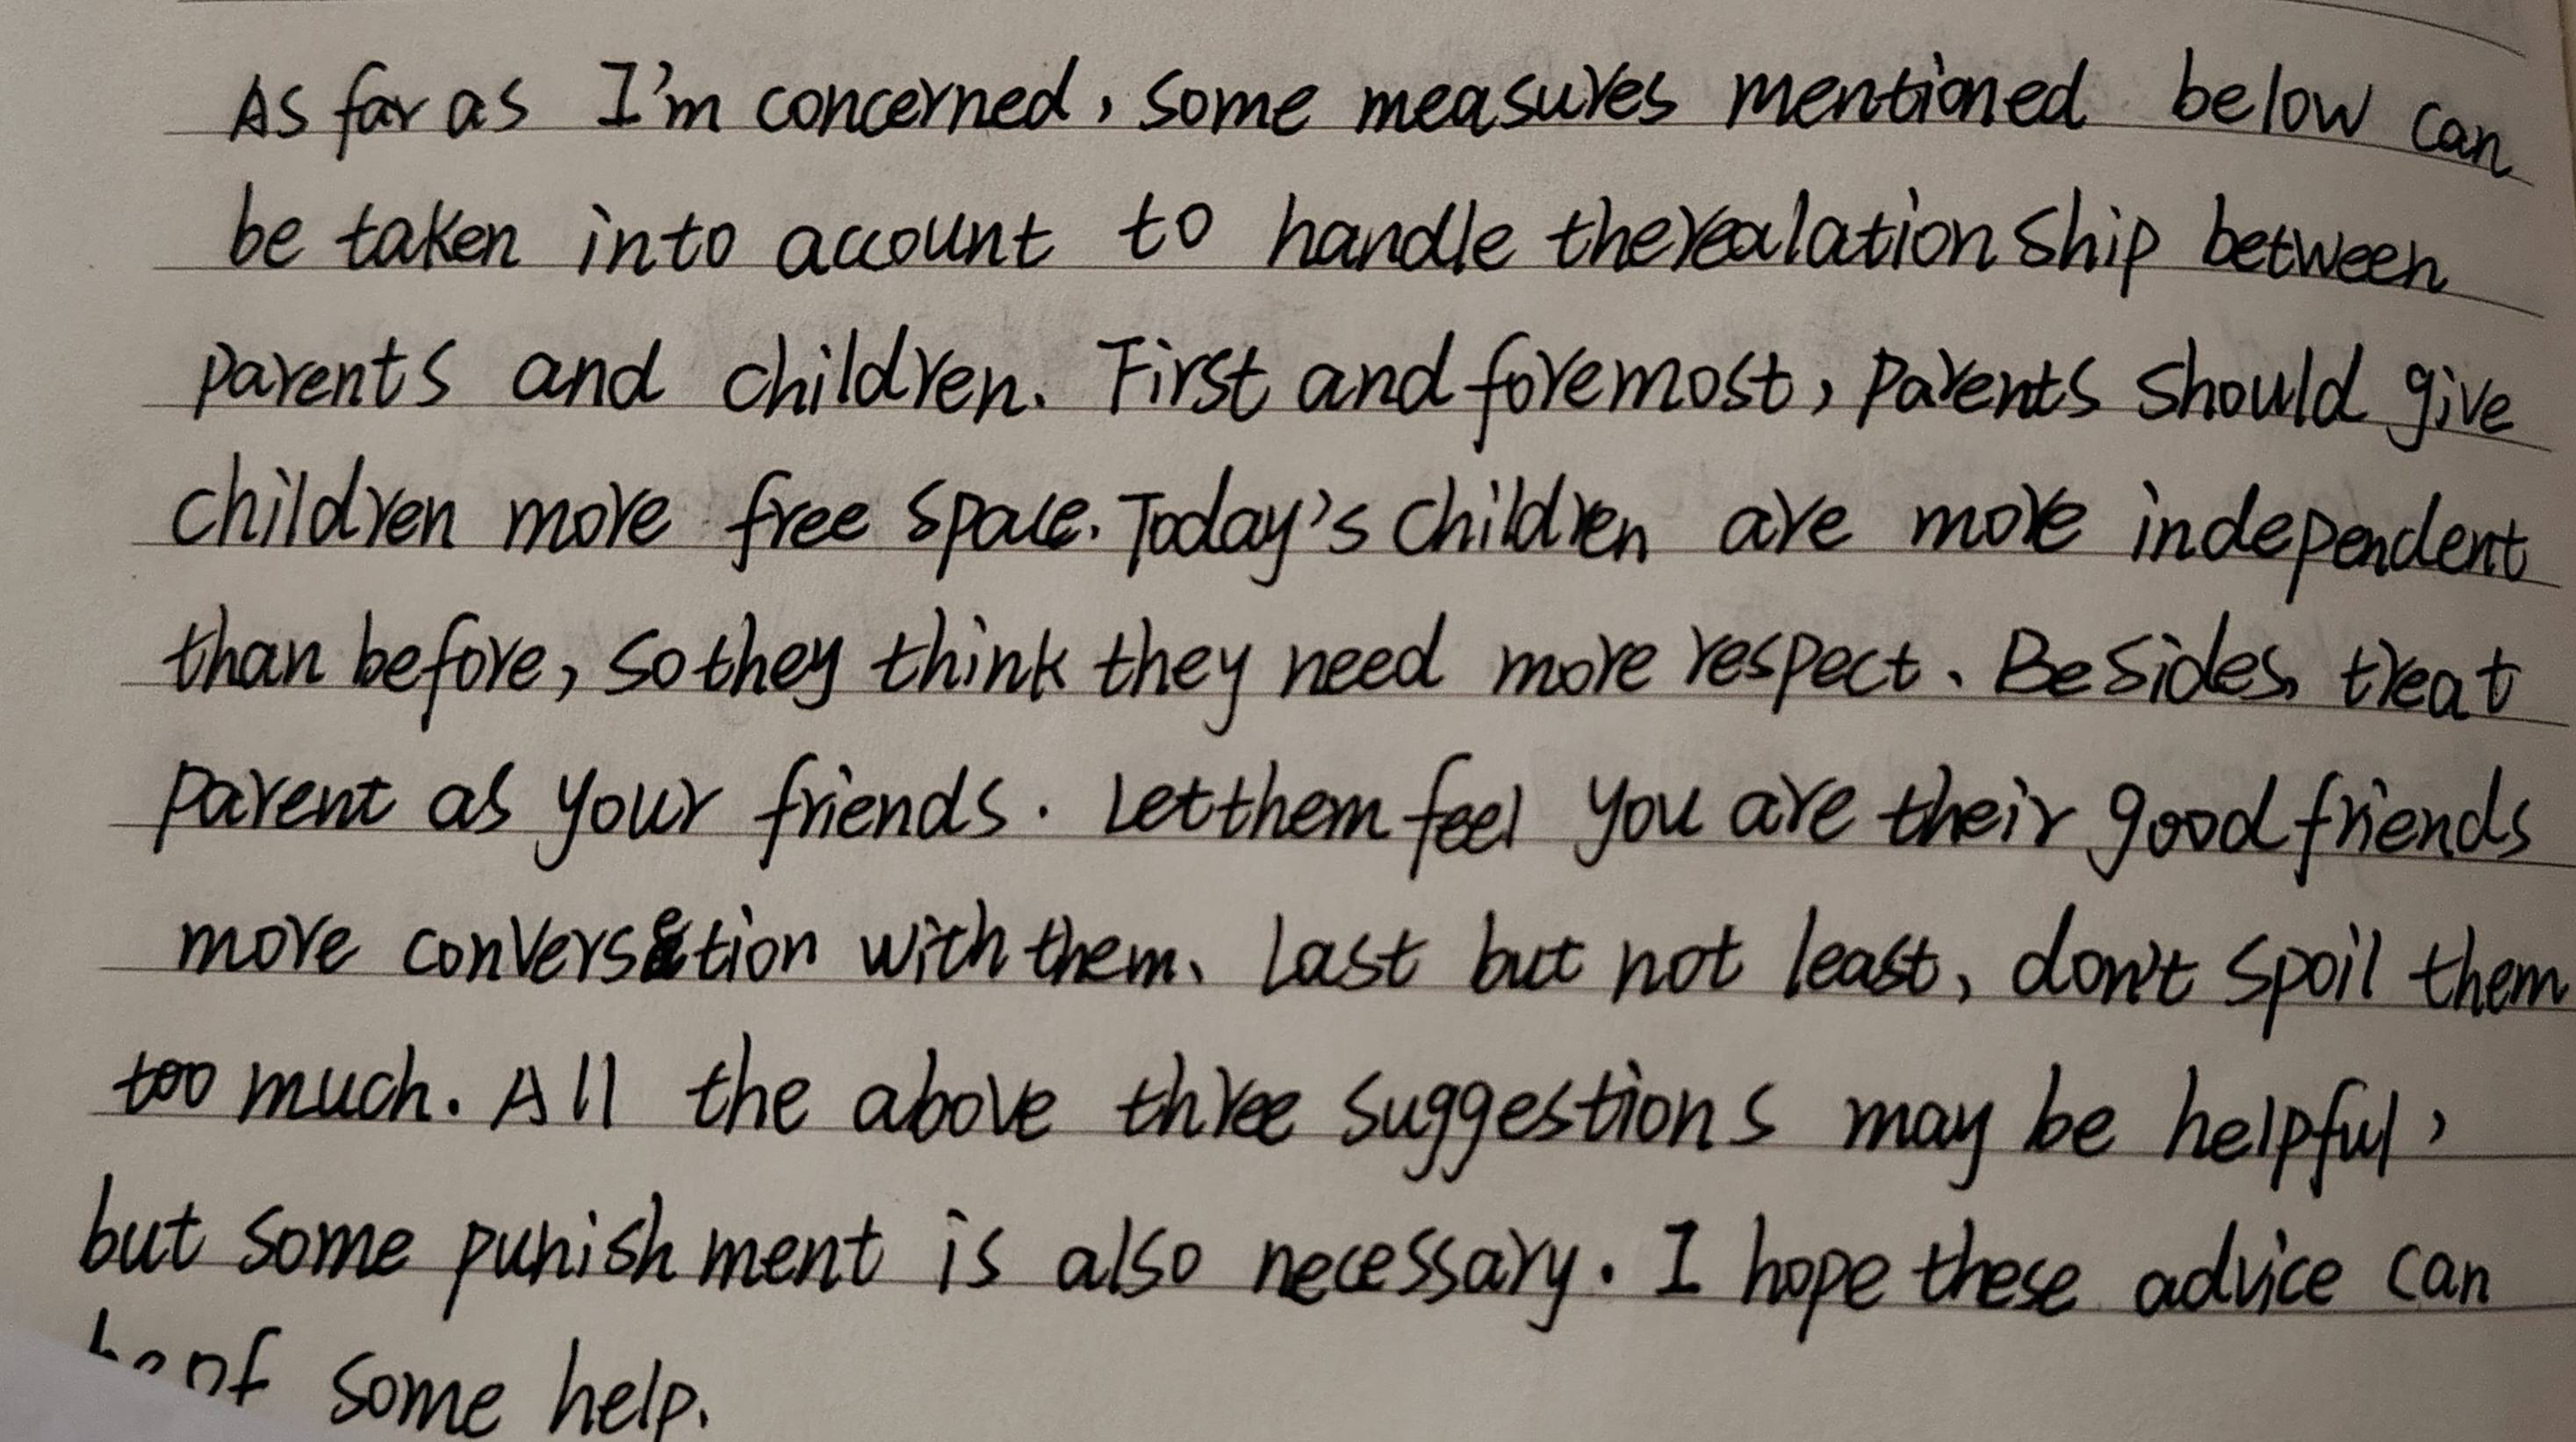 As far as I'm concerned, some measures mentioned below can
be taken into account to handle the realationship between
parents and children. First and foremost, parents should give
children more free space. Today's children are more independent
than before, so they think they need more respect. Besides, treat
parent as your friends. Let them feel you are their good friends
more conversation with them. Last but not least, don't spoil them
too much. All the above three suggestions may be helpful,
but some punishment is also necessary. I hope these advice can
be of some help.